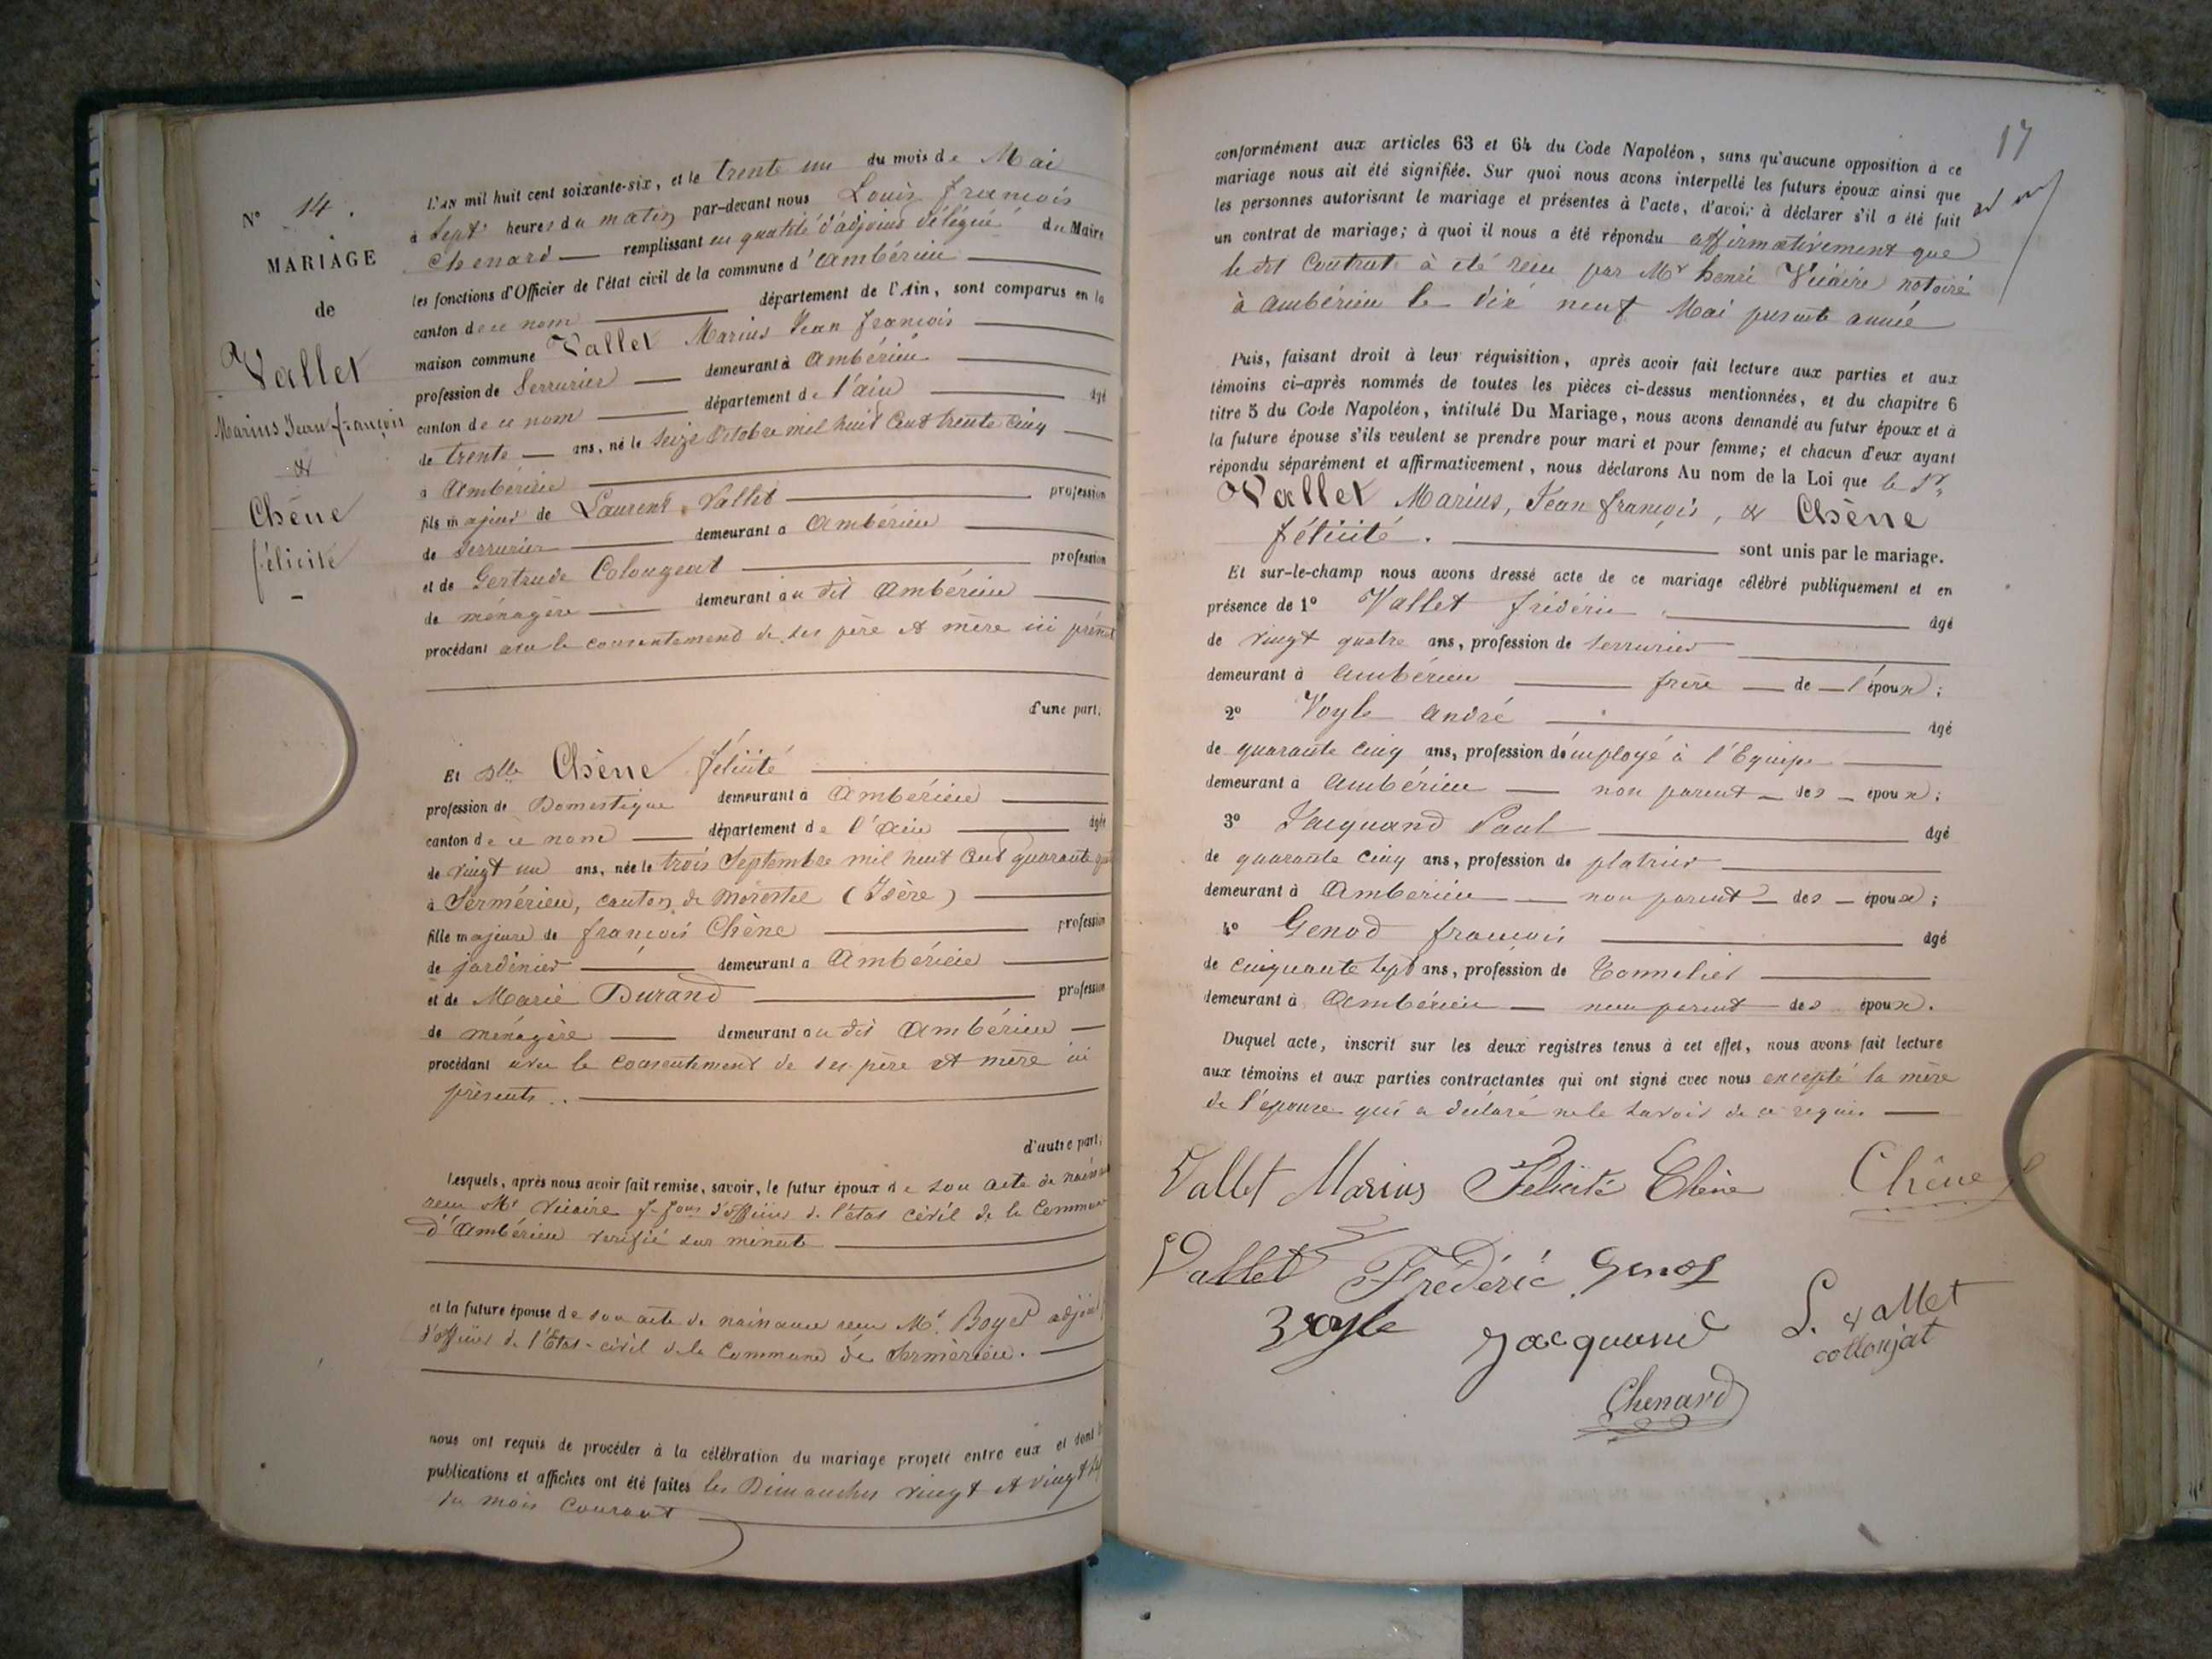 N° 14.
MARIAGE
de
Vallet
Marius Jean françois
&
Chêne
félicité
L'AN mil huit cent soixante-six, et le trente un du mois de Mai
à Sept heures du matin par-devant nous Louis françois
Chenard remplissant en qualité d'adjoint délégué du Maire
les fonctions d'Officier de l'état civil de la commune d'ambérieu
canton de ce nom département de l'Ain, sont comparus en la
maison commune Vallet Marius Jean françois
profession de Serrurier demeurant à Ambérieu
canton de ce nom département de l'ain âgé
de trente ans, né le seize octobre mil huit cent trente cinq
à Ambérieu
fils majeur de Laurent Vallet profession
de serrurier demeurant à Ambérieu
et de Gertrude Colougeat profession
de ménagère demeurant au dit Ambérieu
procédant avec le consentement de ses père et mère ici
d'une part,
Et Dlle Chêne félicité
profession de Domestique demeurant à Ambérieu
canton de ce nom département de l'ain âgée
de vingt un ans, née le trois Septembre mil huit cent quarante
à Sermérieu, canton de Morestel (Isère)
fille majeure de françois Chêne profession
de jardinier demeurant à Ambérieu
et de Marie Durand profession
de ménagère demeurant au dit Ambérieu
procédant avec le consentement de ses père et mère ici
présents.
d'autre part,
Lesquels, après nous avoir fait remise, savoir, le futur époux de son acte de
reçu Mr Vicaire d'officier de l'état civil de la Commune
d'Ambérieu vérifié sur minute
et la future épouse de son acte de naissance reçu Mr. Boyer adjoint
d'officier de l'Etat-civil de la Commune de Sermérieu.
nous ont requis de procéder à la célébration du mariage projeté entre eux et dont
publications et affiches ont été faites les Dimanches vingt et vingt
du mois courant
17
conformément aux articles 63 et 64 du Code Napoléon, sans qu'aucune opposition à ce
mariage nous ait été signifiée. Sur quoi nous avons interpellé les futurs époux ainsi que
les personnes autorisant le mariage et présentes à l'acte, d'avoir à déclarer s'il a été fait
un contrat de mariage; à quoi il nous a été répondu affirmativement que
le dit Contrat à été reçu par Mr henri Vicaire notaire
à ambérieu le dix neuf Mai présente année
Puis, faisant droit à leur réquisition, après avoir fait lecture aux parties et aux
témoins ci-après nommés de toutes les pièces ci-dessus mentionnées, et du chapitre 6
titre 5 du Code Napoléon, intitulé Du Mariage, nous avons demandé au futur époux et à
la future épouse s'ils veulent se prendre pour mari et pour femme; et chacun d'eux ayant
répondu séparément et affirmativement, nous déclarons Au nom de la Loi que le Sr
Vallet Marius, Jean françois, & Chêne
félicité. sont unis par le mariage.
Et sur-le-champ nous avons dressé acte de ce mariage célébré publiquement et en
présence de 1° Vallet frédéric âgé
de vingt quatre ans, profession de serrurier
demeurant à Ambérieu frère de l'époux;
2° Voyle André âgé
de quarante cinq ans, profession d'employé à l'Equipe
demeurant à Ambérieu non parent des époux;
3° Jacquand Paul âgé
de quarante cinq ans, profession de platrier
demeurant à Ambérieu non parent des époux;
4° Genod françois âgé
de cinquante sept ans, profession de Tonnelier
demeurant à Ambérieu non parent des époux.
Duquel acte, inscrit sur les deux registres tenus à cet effet, nous avons fait lecture
aux témoins et aux parties contractantes qui ont signé avec nous excepté la mère
de l'épouse qui a déclaré ne le savoir de ce requis
Vallet Marius Félicité Chêne Chêne
Vallet Frédéric Genod
Voyle Jacquand L. Vallet
collonjat
Chenard